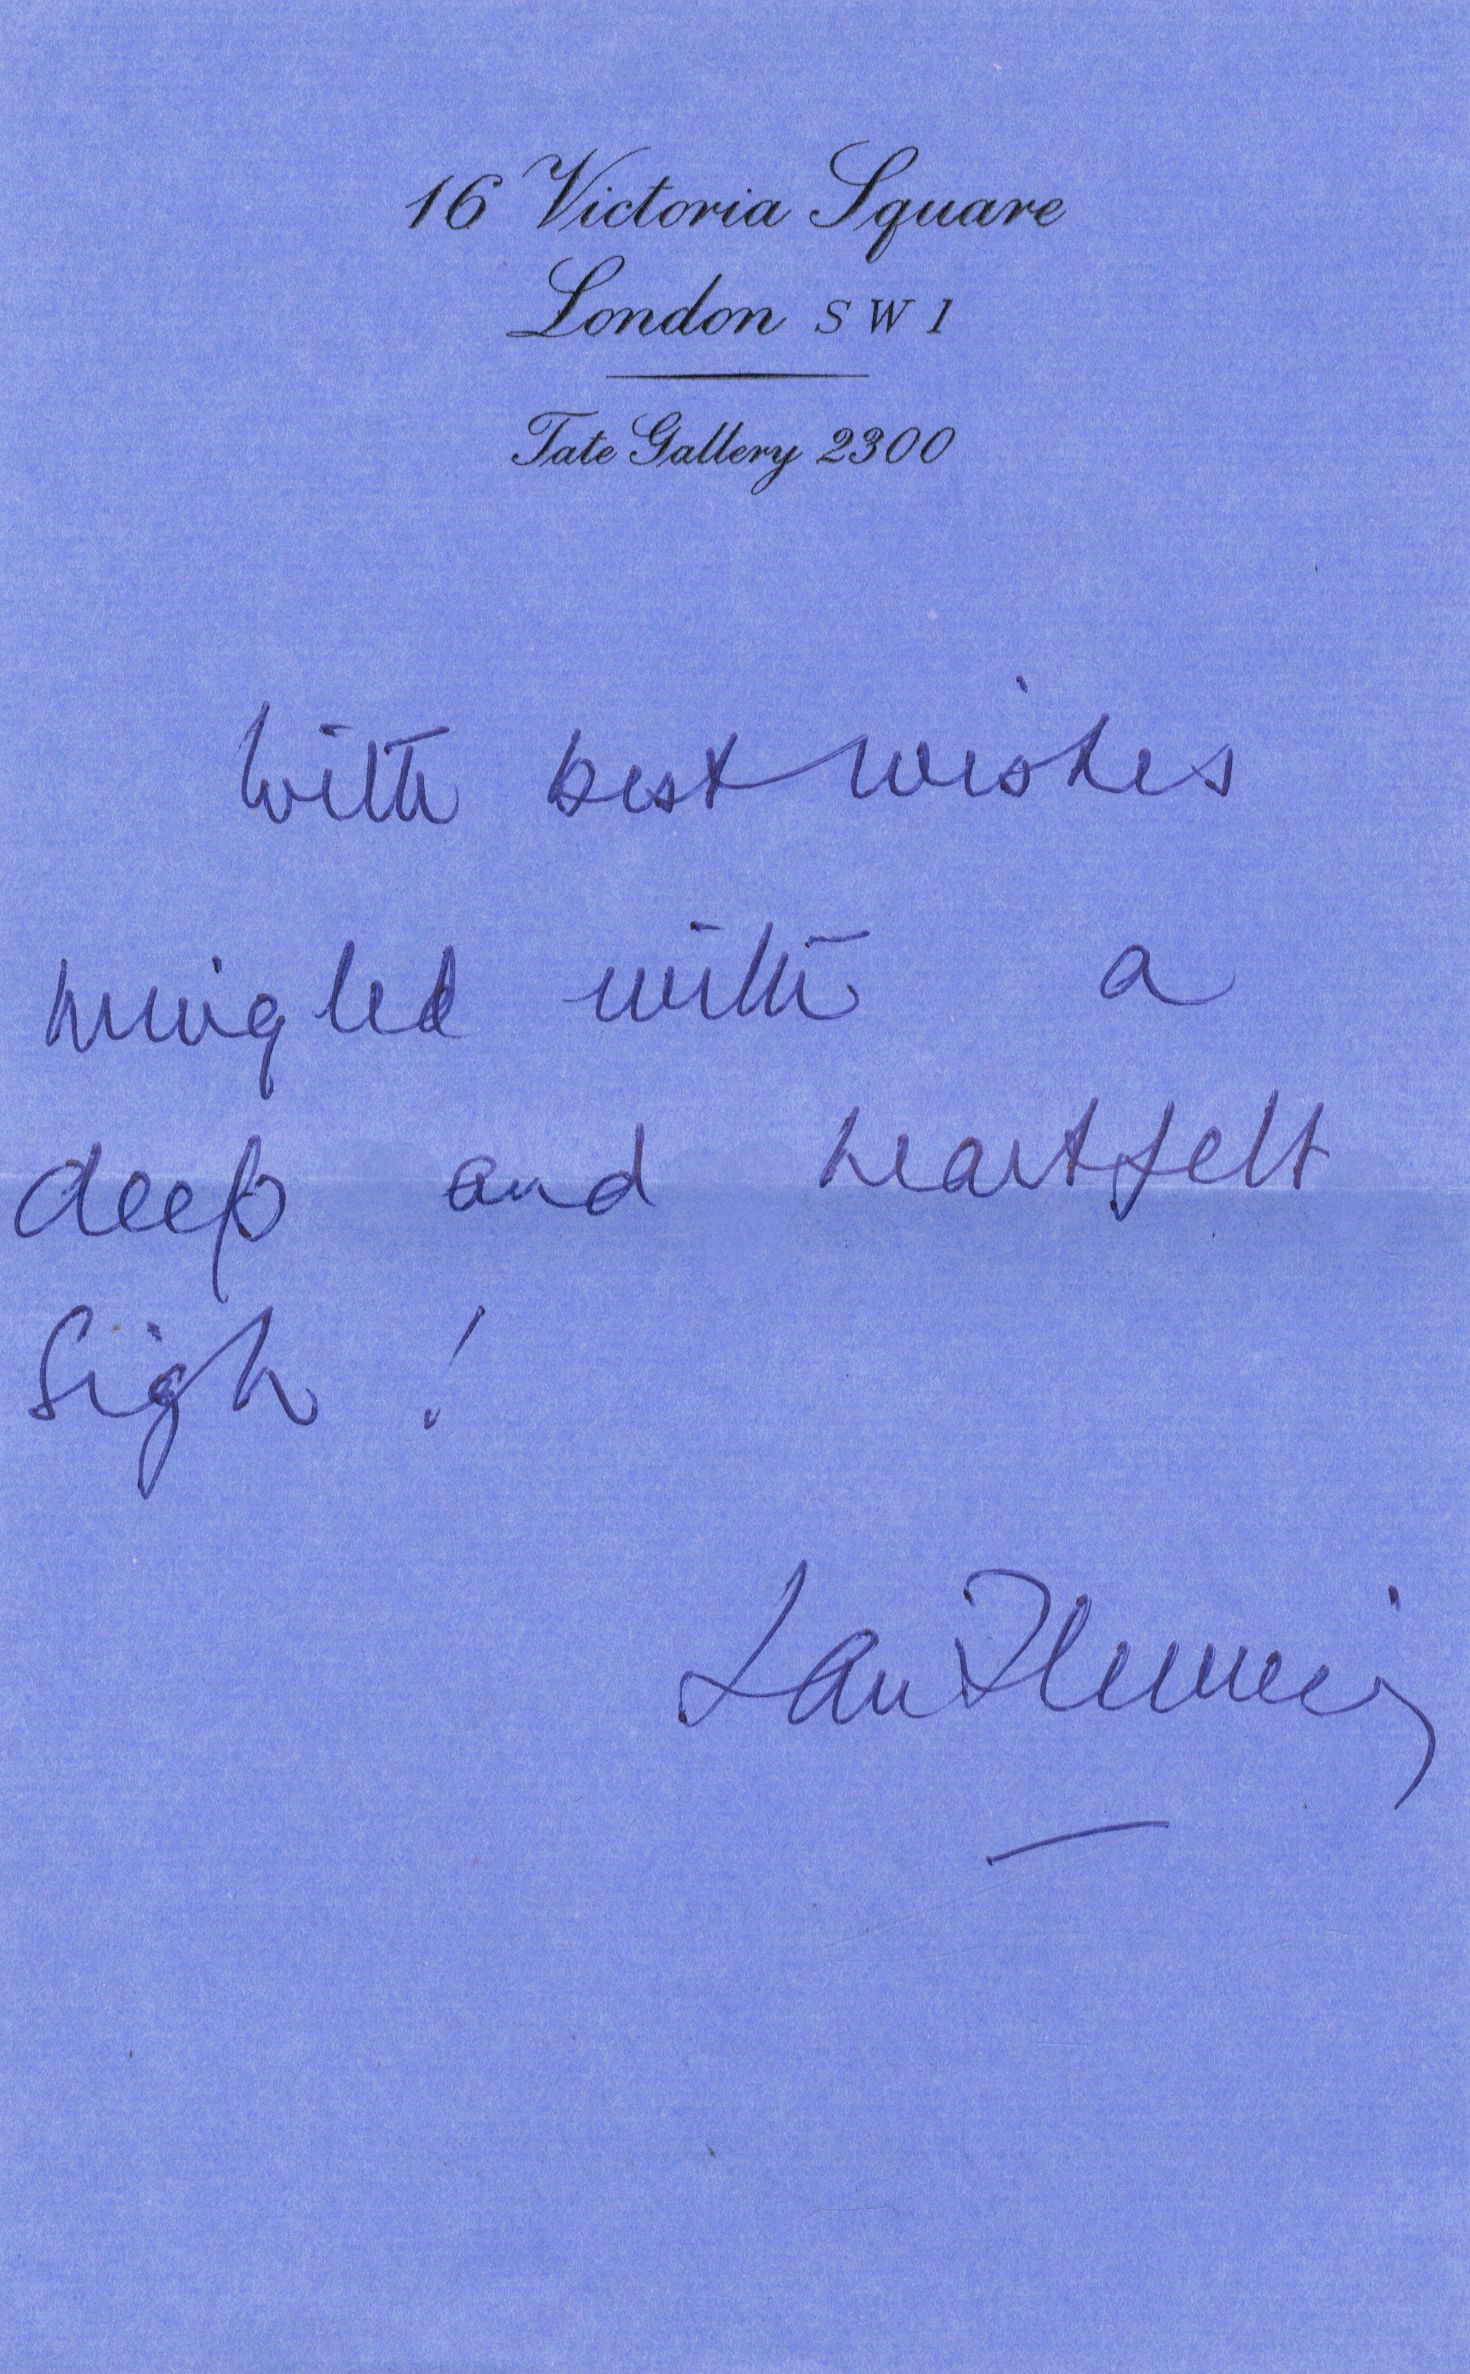 16 Victoria Square
London SW1
Tate Gallery 2300
With best wishes
mingled with a
deep and heartfelt
Sigh!
Ian Fleming